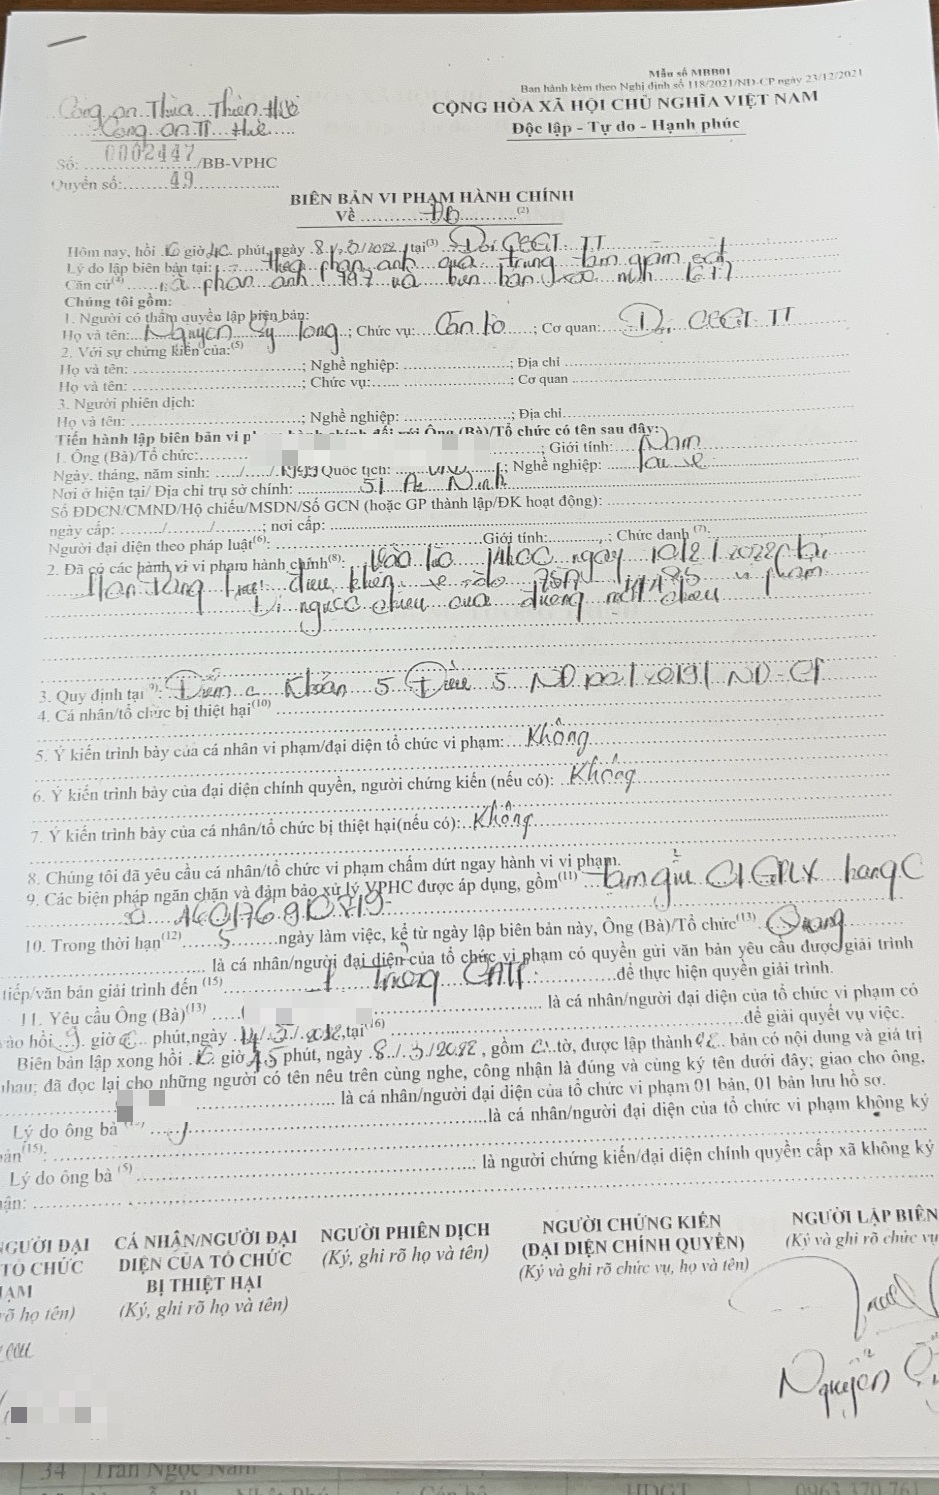 Mẫu số MBB01
Ban hành kèm theo Nghị định số 118/2021/NĐ-CP ngày 23/12/2021
CỘNG HÒA XÃ HỘI CHỦ NGHĨA VIỆT NAM
Độc lập - Tự do - Hạnh phúc
Công an Thừa Thiên Huế
Công an TP Huế
Số: 0002447/BB-VPHC
Quyển số: 49
BIÊN BẢN VI PHẠM HÀNH CHÍNH
Về ĐB (2)
Hôm nay, hồi giờ phút, ngày 8/3/2022, tại(3) Đội CSGT TT
Lý do lập biên bản tại: theo phản ánh qua trung tâm giám sát
Căn cứ(4) phản ánh 797 và biên bản xác minh
Chúng tôi gồm:
1. Người có thẩm quyền lập biên bản:
Họ và tên: Nguyễn Sỹ Long; Chức vụ: Cán bộ; Cơ quan: Đội CSGT TT
2. Với sự chứng kiến của:(5)
Họ và tên: ; Nghề nghiệp: ; Địa chỉ
Họ và tên: ; Chức vụ: ; Cơ quan
3. Người phiên dịch:
Họ và tên: ; Nghề nghiệp: ; Địa chỉ
Tiến hành lập biên bản vi p Ông (Bà)/Tổ chức có tên sau đây:
1. Ông (Bà)/Tổ chức: ; Giới tính: Nam
Ngày, tháng, năm sinh: Quốc tịch: VN; Nghề nghiệp: Lái xe
Nơi ở hiện tại/ Địa chỉ trụ sở chính: 51 An Ninh
Số ĐDCN/CMND/Hộ chiếu/MSDN/Số GCN (hoặc GP thành lập/ĐK hoạt động):
ngày cấp: / / ; nơi cấp:
Người đại diện theo pháp luật(6): Giới tính: ; Chức danh(7):
2. Đã có các hành vi vi phạm hành chính(8): Vào lúc ngày 10/2/2022
điều khiển xe 75A vi phạm
Đi ngược chiều của đường một chiều
3. Quy định tại(9): Điểm c Khoản 5 Điều 5 NĐ 100/2019/NĐ-CP
4. Cá nhân/tổ chức bị thiệt hại(10)
5. Ý kiến trình bày của cá nhân vi phạm/đại diện tổ chức vi phạm: Không
6. Ý kiến trình bày của đại diện chính quyền, người chứng kiến (nếu có): Không
7. Ý kiến trình bày của cá nhân/tổ chức bị thiệt hại(nếu có): Không
8. Chúng tôi đã yêu cầu cá nhân/tổ chức vi phạm chấm dứt ngay hành vi vi phạm.
9. Các biện pháp ngăn chặn và đảm bảo xử lý VPHC được áp dụng, gồm(11) Tạm giữ 01 GPLX hạng C
số
10. Trong thời hạn(12) 5 ngày làm việc, kể từ ngày lập biên bản này, Ông (Bà)/Tổ chức(13) Quang
là cá nhân/người đại diện của tổ chức vi phạm có quyền gửi văn bản yêu cầu được giải trình
tiếp/văn bản giải trình đến (15) Trưởng CATP để thực hiện quyền giải trình.
11. Yêu cầu Ông (Bà)(13) là cá nhân/người đại diện của tổ chức vi phạm có
vào hồi 9 giờ phút, ngày 14/3/2022, tại(16) để giải quyết vụ việc.
Biên bản lập xong hồi giờ 45 phút, ngày 8/3/2022, gồm 01 tờ, được lập thành 02 bản có nội dung và giá trị
nhau; đã đọc lại cho những người có tên nêu trên cùng nghe, công nhận là đúng và cùng ký tên dưới đây; giao cho ông,
là cá nhân/người đại diện của tổ chức vi phạm 01 bản, 01 bản lưu hồ sơ.
Lý do ông bà là cá nhân/người đại diện của tổ chức vi phạm không ký
bản(15):
Lý do ông bà (5) là người chứng kiến/đại diện chính quyền cấp xã không ký
NGƯỜI ĐẠI
TỔ CHỨC
PHẠM
rõ họ tên)
CÁ NHÂN/NGƯỜI ĐẠI
DIỆN CỦA TỔ CHỨC
BỊ THIỆT HẠI
(Ký, ghi rõ họ và tên)
NGƯỜI PHIÊN DỊCH
(Ký, ghi rõ họ và tên)
NGƯỜI CHỨNG KIẾN
(ĐẠI DIỆN CHÍNH QUYỀN)
(Ký và ghi rõ chức vụ, họ và tên)
NGƯỜI LẬP BIÊN
(Ký và ghi rõ chức vụ
Nguyễn
34 Trần Ngọc Nam
Cán bộ HDGT 0963 370 761